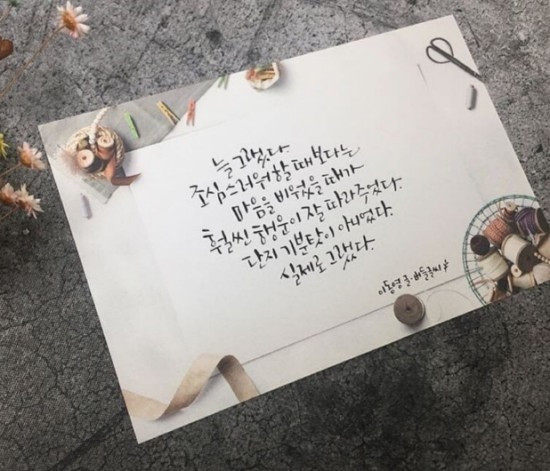 늘 그랬다.
조심스러워할 때보다는
마음을 비웠을 때가
훨씬 행운이 잘 따라주었다.
단지 기분탓이 아니었다.
실제로 그랬다.
이동영 글·버들글씨